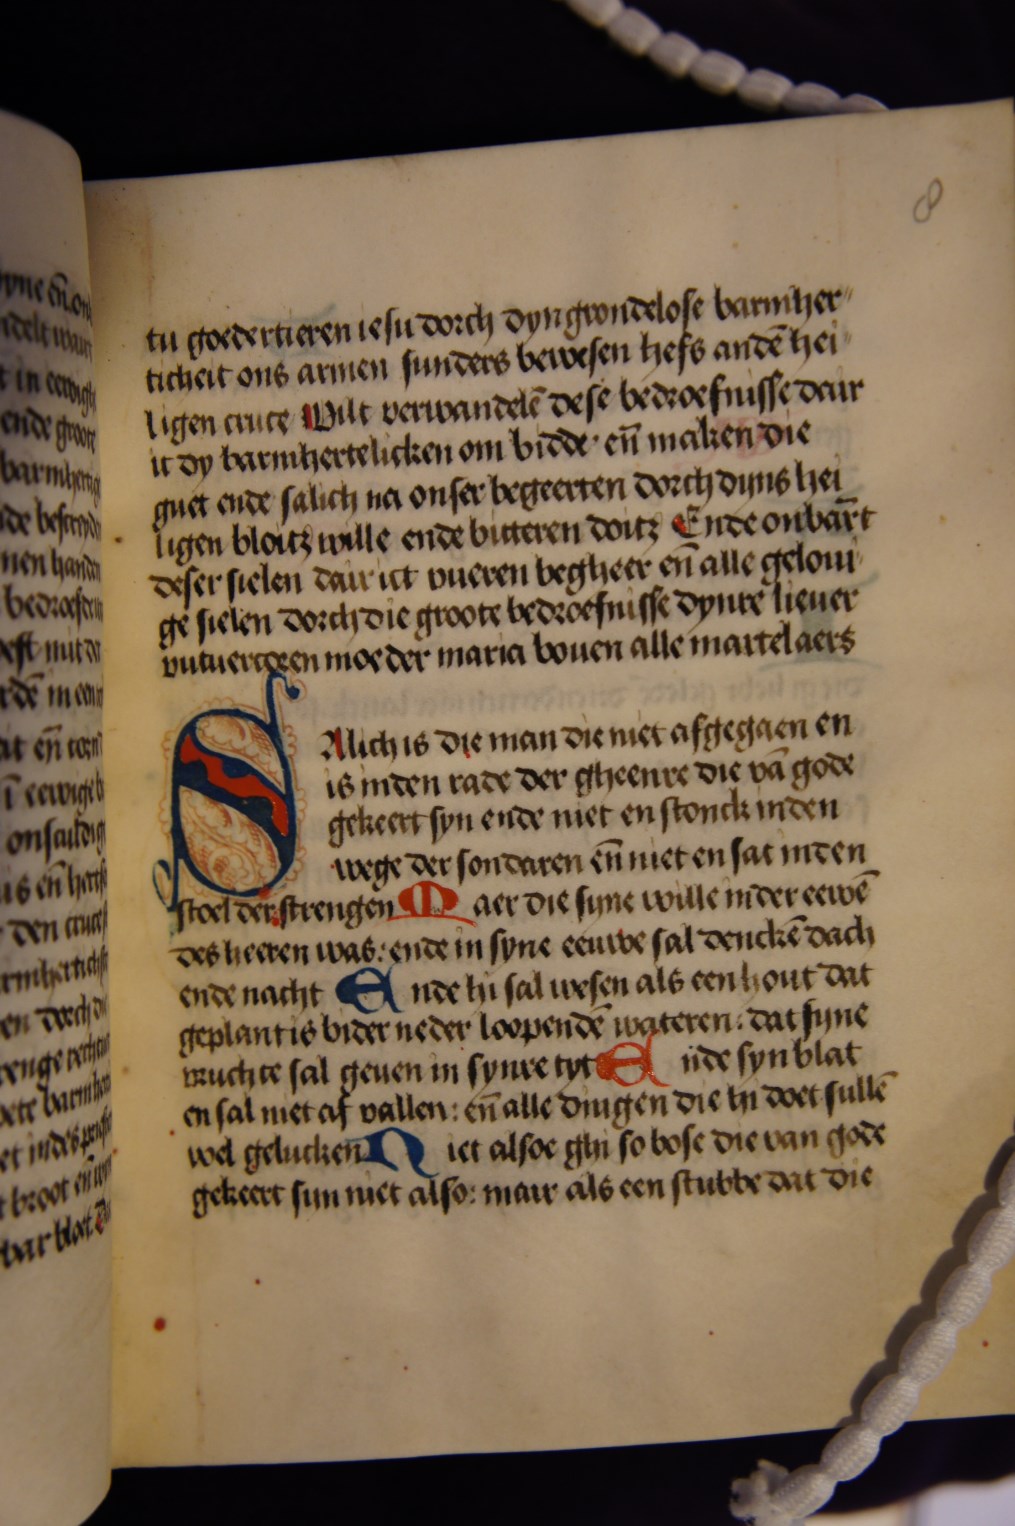 8
tu goedertieren iesu dorch dyn grondelose barmher
ticheit ons armen sunders bewesen hefs andē hei
ligen cruce Wilt verwandelē dese bedroefnisse dair
ic dy barmhertelicken om bidde· eñ maken die
guet ende salich na onser begeerten dorch dyns hei
ligen bloitz wille ende bitteren doitz Ende onbarēt
deser sielen dair ict vueren begheer eñ alle geloui
ge sielen dorch die groote bedroefnisse dynre lieuer
vutuercoren moeder maria bouen alle martelaers
SAlich is die man die niet afgegaen en
is inden rade der gheenre die vā gode
gekeert syn ende niet en stonck inden
wege der sondaren eñ niet en sat inden
stoel der strengen Maer die syne wille inder eewē
des heeren was: ende in syne eeuwe sal denckē dach
ende nacht Ende hi sal wesen als een hout dat
geplant is bider neder loopendē wateren: dat syne
vruchte sal geuen in synre tyt Ende syn blat
en sal niet af vallen: eñ alle dingen die hi doet sullē
wel gelucken Niet alsoe ghi so bose die van gode
gekeert sijn niet also: mair als een stubbe dat die